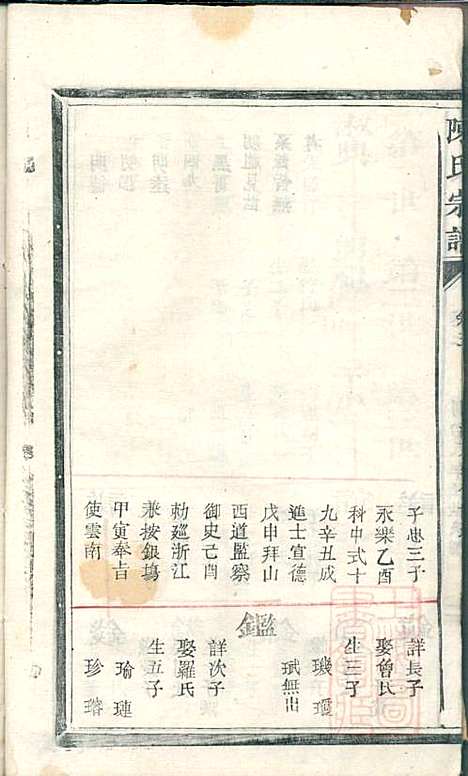 陳氏宗譜
卷三
子忠三子
永樂乙酉
科中式十
九辛丑成
進士宣德
戊申拜山
西道監察
御史己酉
勅廵浙江
兼按銀塲
甲寅奉吉
使雲南
詳長子
娶曾氏
生三子
璣
斌無出
鑑
詳次子
娶羅氏
生五子
瑜 璉
珍 璿